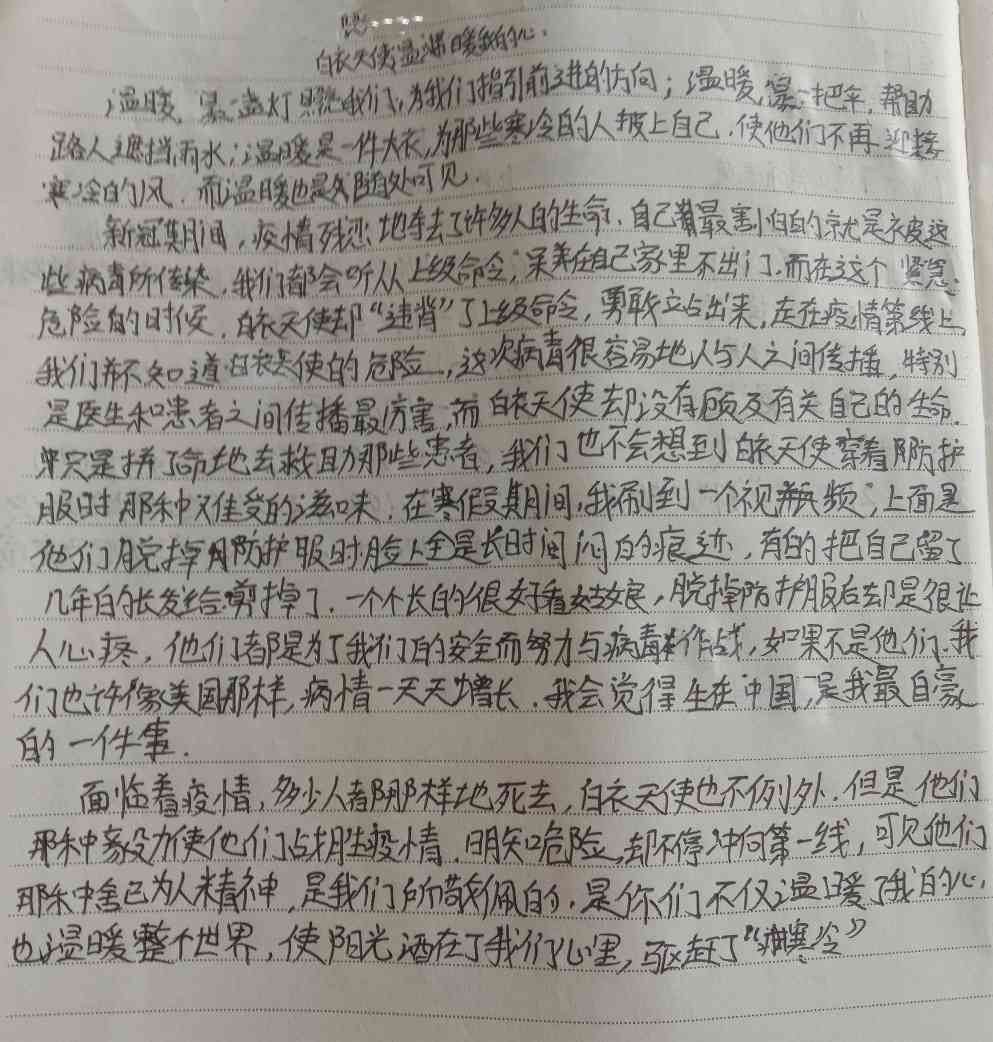 白衣天使温暖我的心.
温暖,是一盏灯照亮我们,为我们指引前进的方向;温暖,是一把伞,帮助
路人遮挡雨水;温暖是一件大衣,为那些寒冷的人披上自己,使他们不再迎接
寒冷的风.而温暖也是随处可见.
新冠期间,疫情残忍地夺去了许多人的生命.自己最害怕的就是被这
些病毒所传染,我们都会听从上级命令,呆在自己家里不出门.而在这个紧急
危险的时候,白衣天使却“违背”了上级命令,勇敢立占出来,走在疫情第线上,
我们并不知道白衣天使的危险,这次病毒很容易地人与人之间传播,特别
是医生和患者之间传播最厉害,而白衣天使却没有顾及有关自己的生命.
只是拼了命地去救助那些患者,我们也不会想到白衣天使穿着防护
服时那种难受的滋味.在寒假期间,我刷到一个视频;上面是
他们脱掉防护服时脸上全是长时间闷的痕迹,有的把自己留了
几年的长发给剪掉了.一个个长的很好看姑娘,脱掉防护服后却是很让
人心疼,他们都是为了我们的安全而努力与病毒作战,如果不是他们.我
们也许像美国那样,病情一天天增长.我会觉得生在中国,是我最自豪
的一件事.
面临着疫情,多少人都那样地死去,白衣天使也不例外.但是他们
那种毅力使他们战胜疫情.明知危险,却不停冲向第一线,可见他们
那种舍己为人精神,是我们所敬佩的.是你们不仅温暖了我的心,
也温暖整个世界,使阳光洒在了我们心里,驱赶了“寒冷”